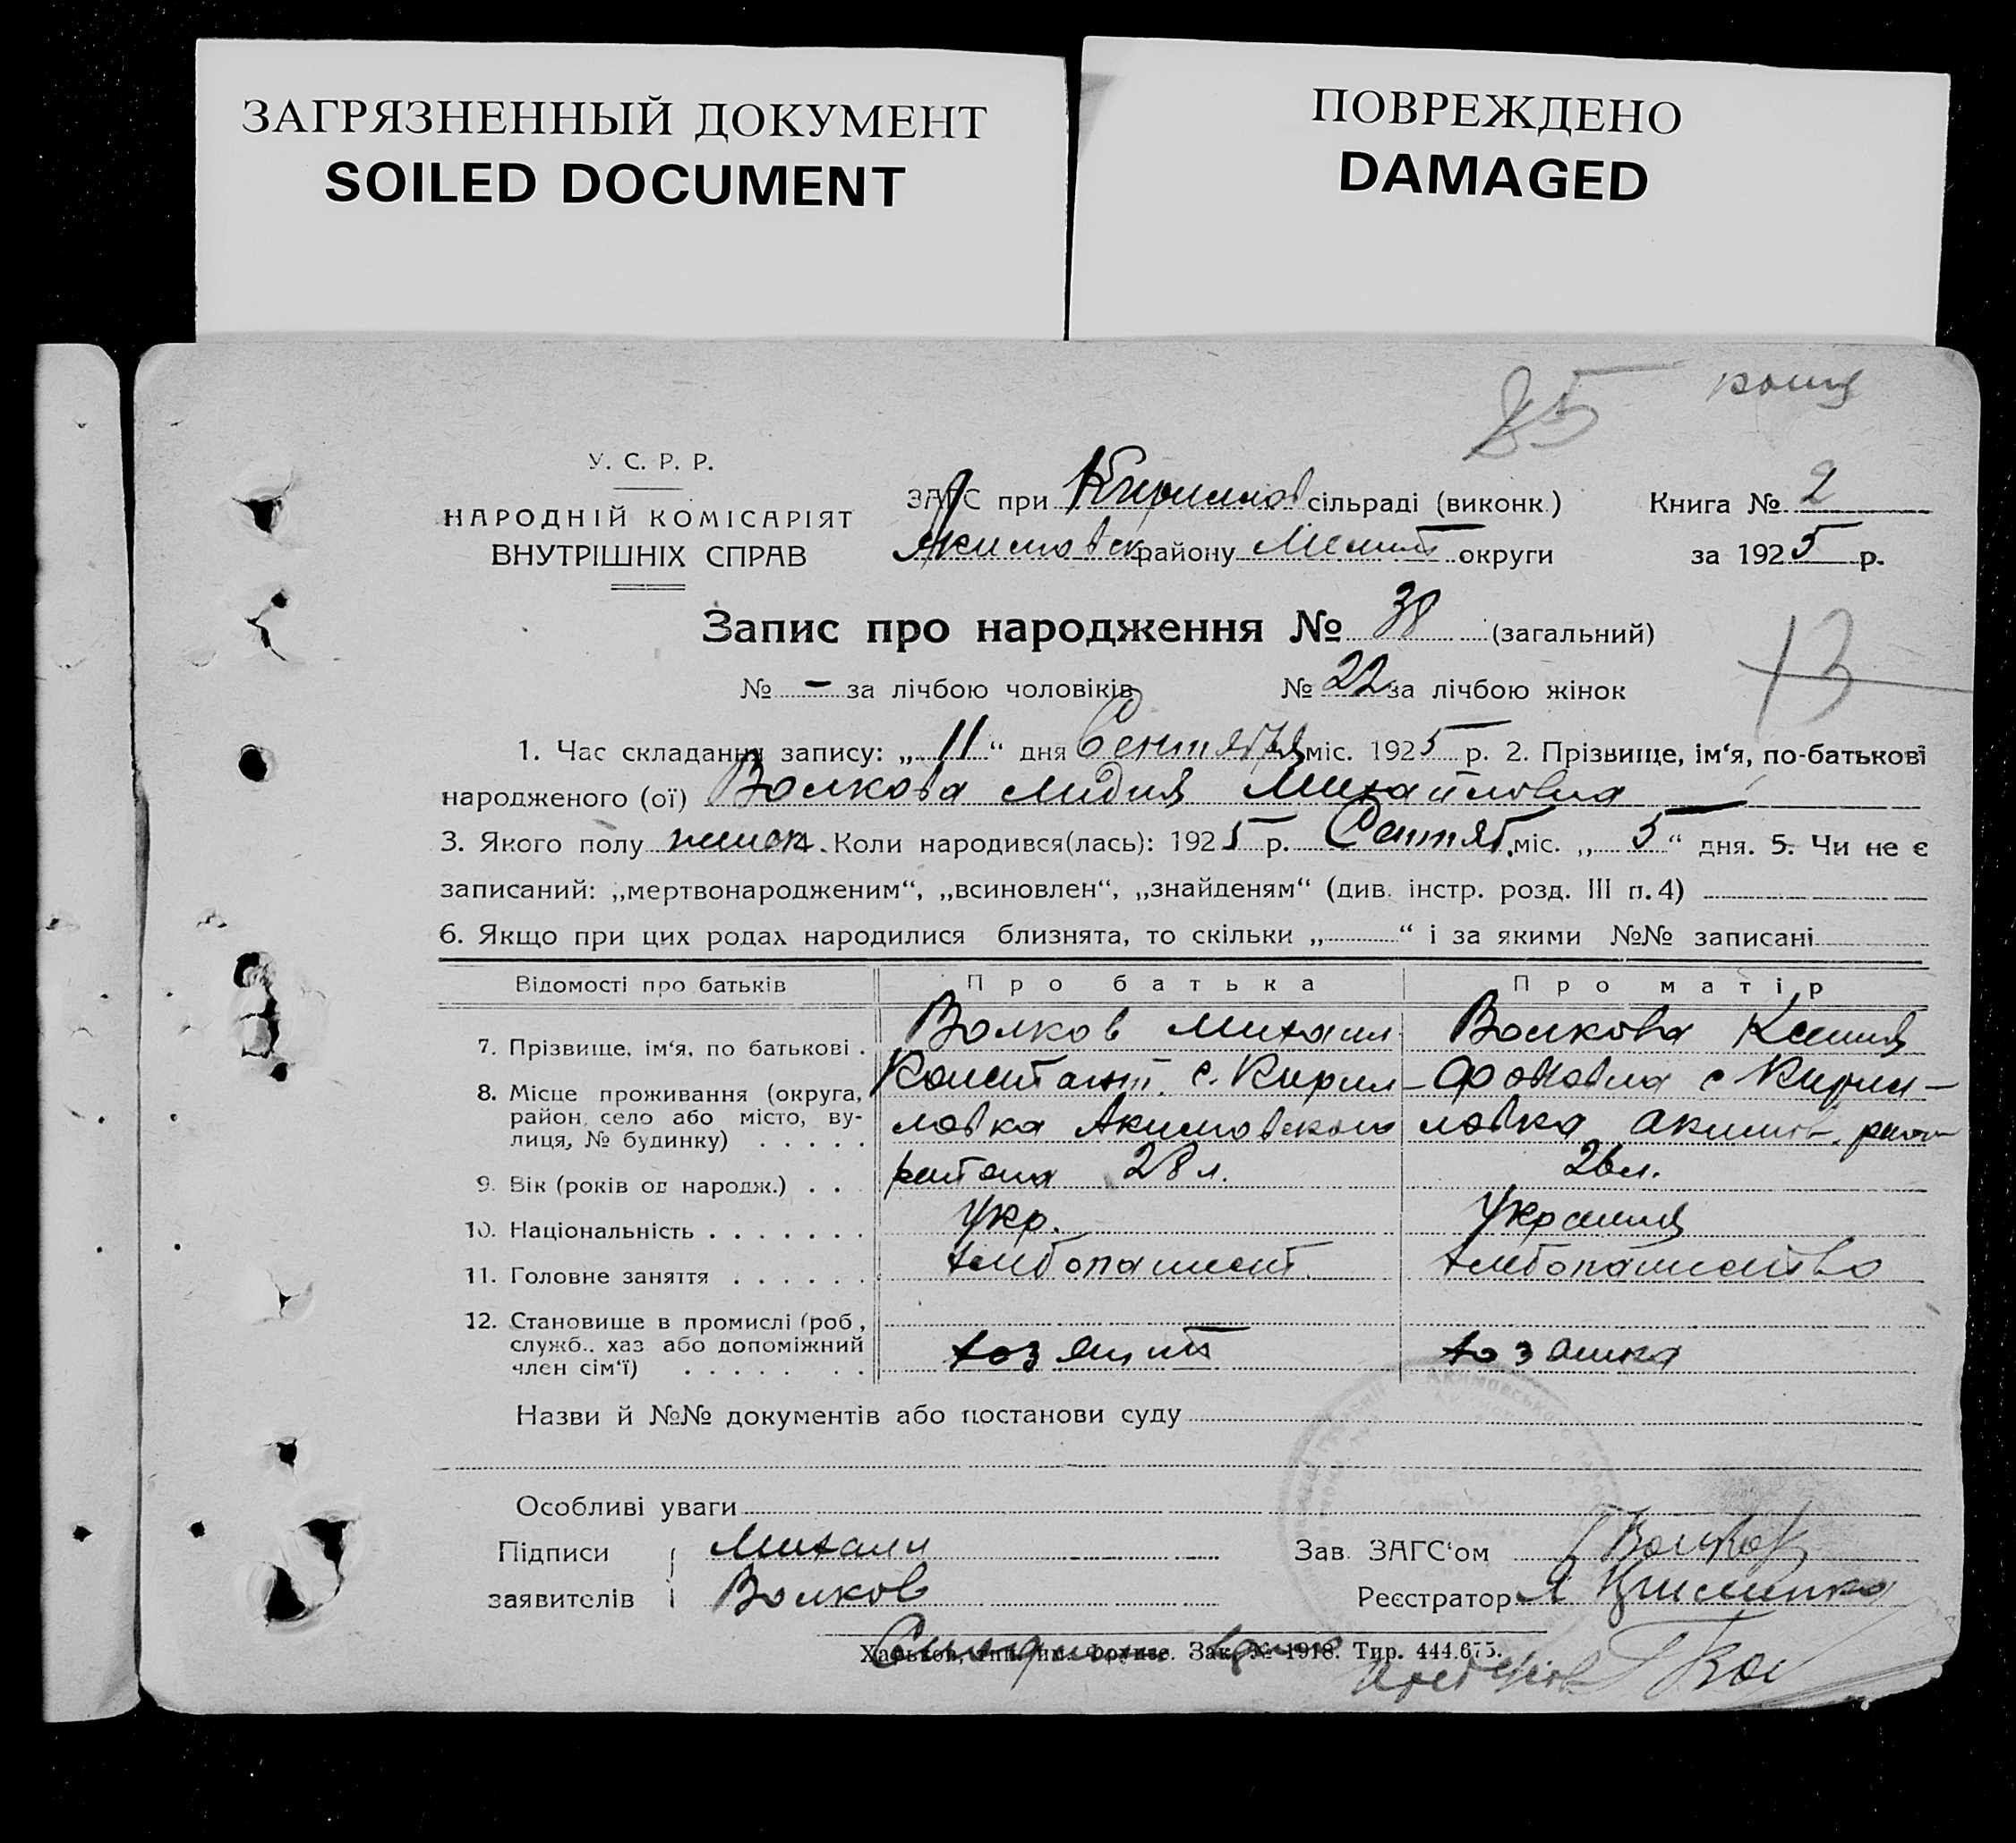 ЗАГРЯЗНЕННЫЙ ДОКУМЕНТ
SOILED DOCUMENT
ПОВРЕЖДЕНО
DAMAGED
85
У. С. Р. Р.
НАРОДНІЙ КОМІСАРІЯТ
ВНУТРІШНІХ СПРАВ
ЗАГС при Кирилов сільраді (виконк.) Книга № 2
Акимовск району Мелит округи за 1925 р.
Запис про народження № 38 (загальний)
13
№ - за лічбою чоловіків № 22 за лічбою жінок
1. Час складання запису: „11“ дня Сентября міс. 1925 р. 2. Прізвище, ім‘я, по-батькові
народженого (ої) Волкова Лидия Михайловна
3. Якого полу женск. Коли народився(лась): 1925 р. Сентяб. міс. „5“ дня. 5. Чи не є
записаний: „мертвонародженим“, „всиновлен“, „знайденям“ (див. інстр. розд. III п. 4)
6. Якщо при цих родах народилися близнята, то скільки „ “ і за якими №№ записані
Відомості про батьків Про батька Про матір
7. Прізвище, ім‘я, по батькові . Волков Михаил Волкова Ксения
8. Місце проживання (округа, Констант. с. Кирил- Фоковна с Кирил-
район, село або місто, ву-
лиця, № будинку) . . . . . ловка Акимовского ловка Акимов. район
9. Вік (років од народж.) . . района 28 л. 26 л.
10. Національність . . . . . . . Укр. Украинц
11. Головне заняття . . . . . . хлебопашест. хлебопашество
12. Становище в промислі (роб.,
служб., хаз або допоміжний хозяин хозяика
член сім‘ї) . . . . . . .
Назви й №№ документів або постанови суду
Особливі уваги
Підписи Михаил Зав. ЗАГС‘ом Волков
заявителів Волков Реєстратор
Харьков, тип. им. Фрунзе. Зак. № 1918. Тир. 444.675.